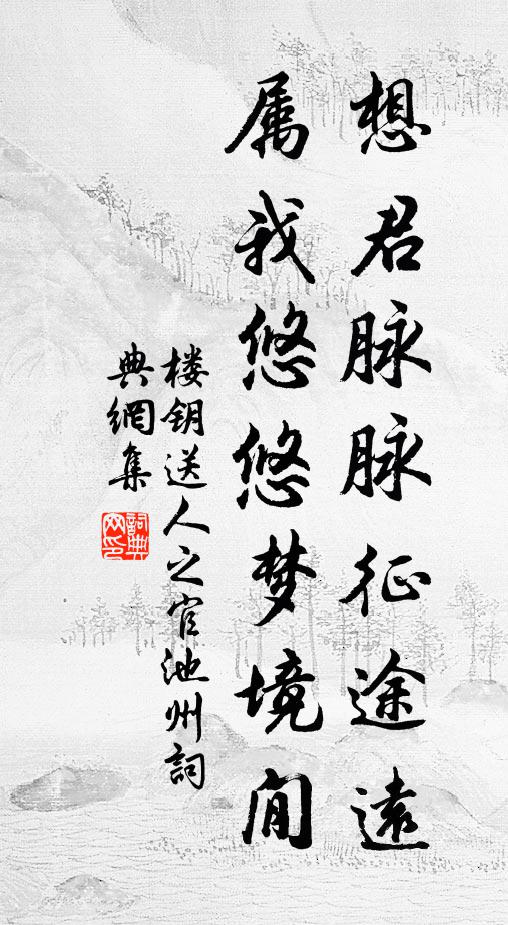 想君脉脉征途遠
属我悠悠梦境閒
楼钥送人之官池州詞
典網集
詞典
网印